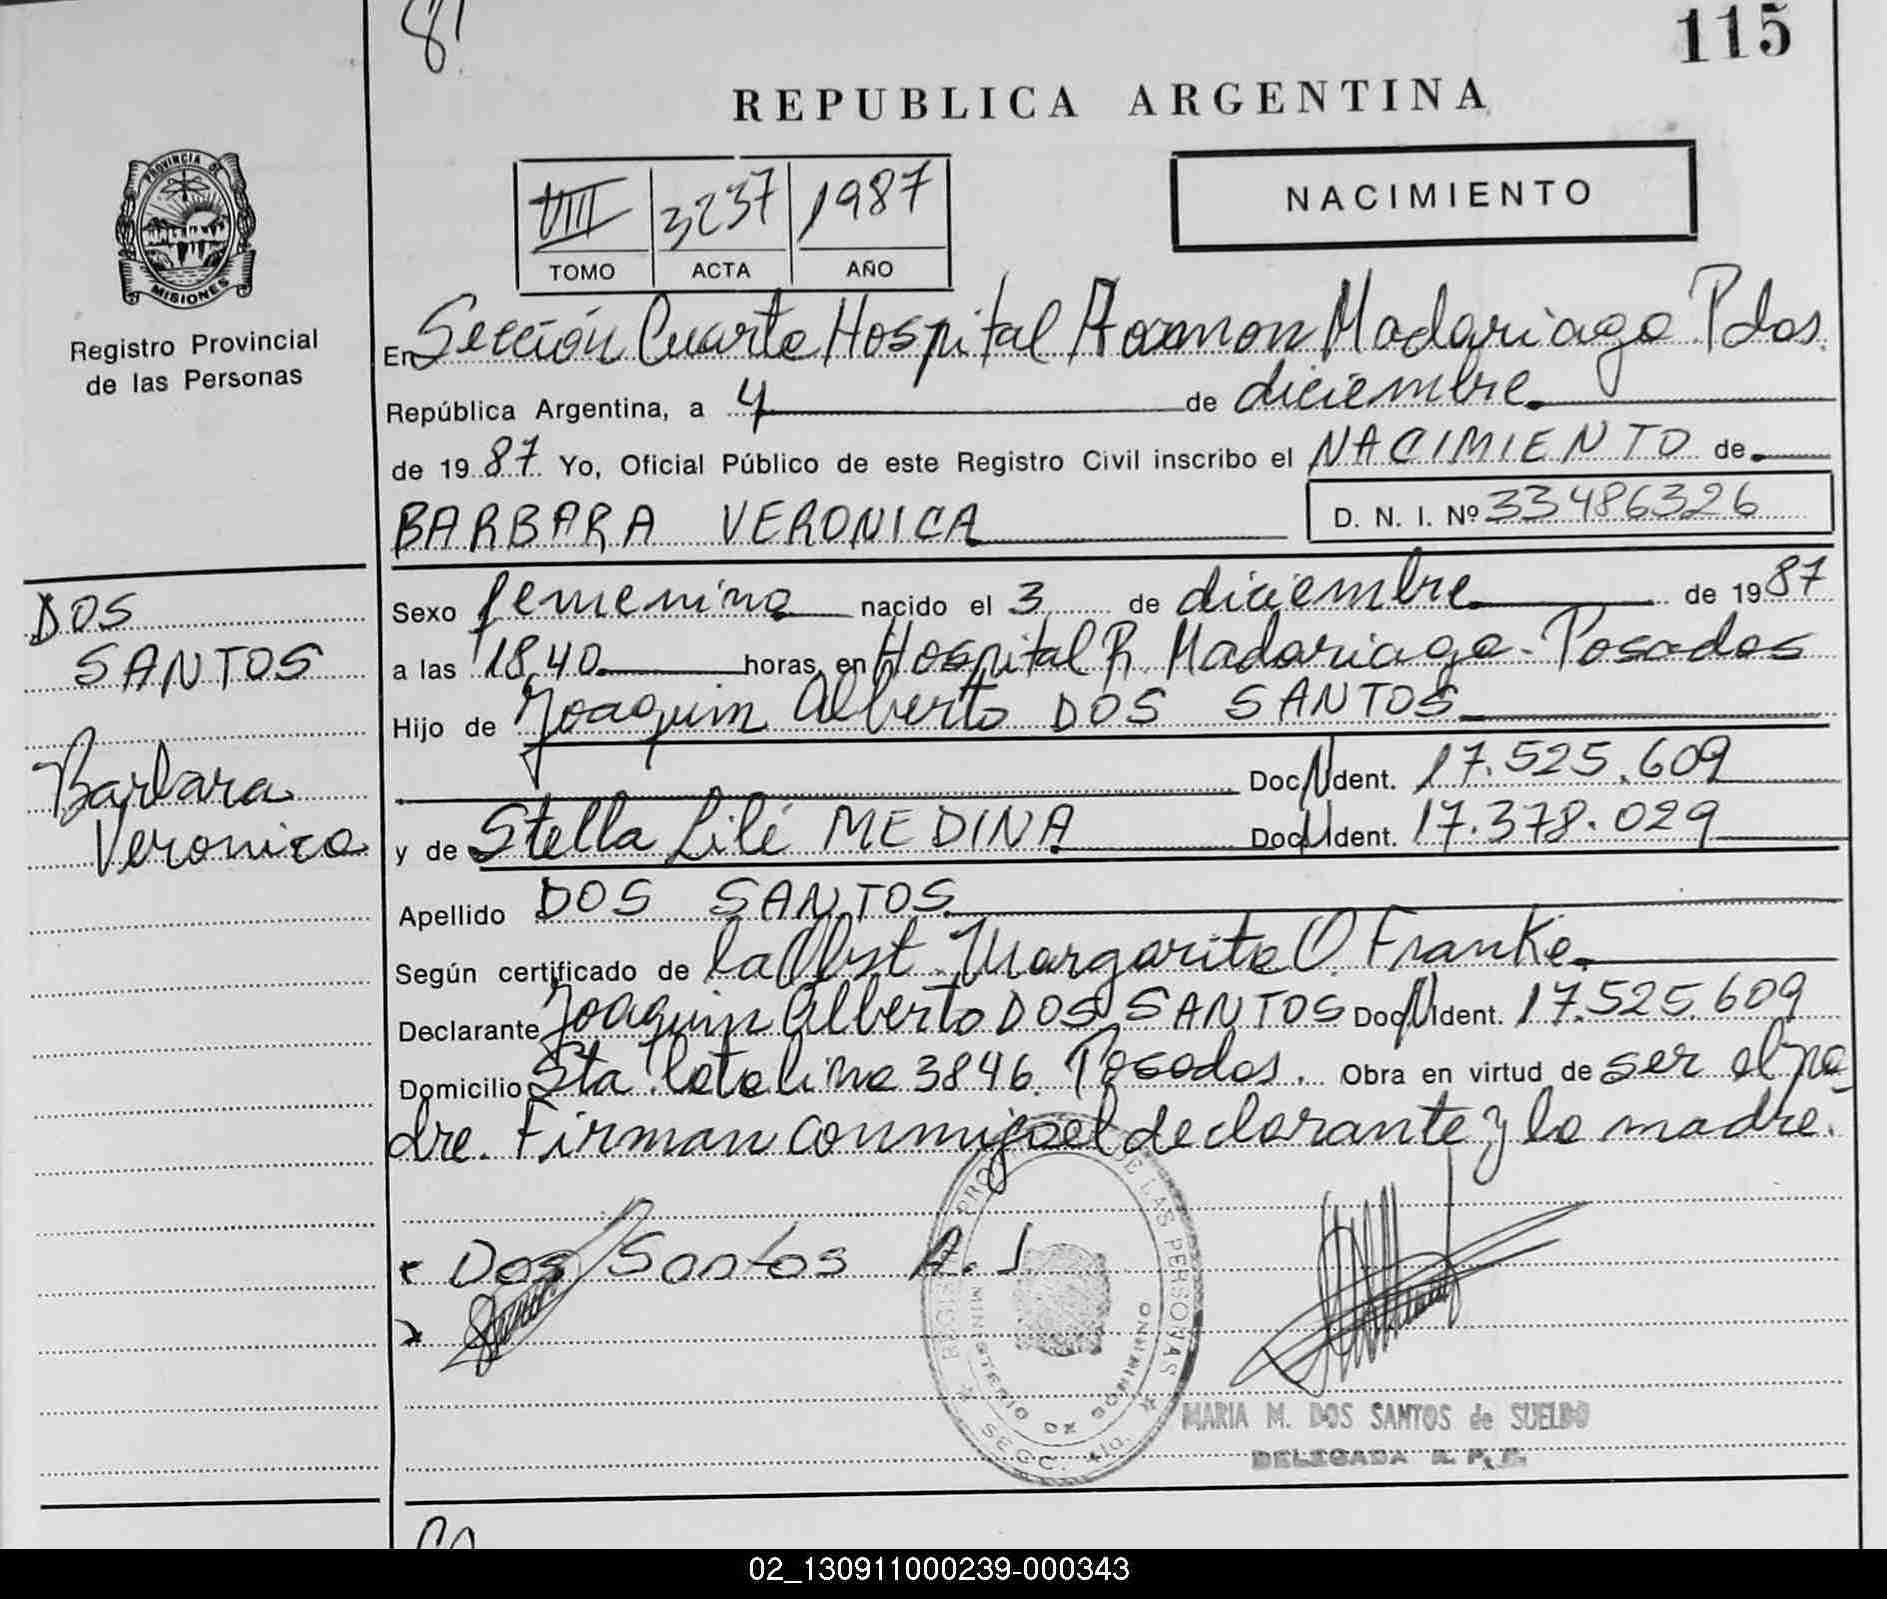 8
115
REPUBLICA ARGENTINA
PROVINCIA DE
MISIONES
Registro Provincial
de las Personas
VIII 3237 1987
TOMO ACTA AÑO
NACIMIENTO
En Sección Cuarta Hospital Ramon Madariaga Pdas.
República Argentina, a 4 de diciembre
de 1987. Yo, Oficial Público de este Registro Civil inscribo el NACIMIENTO de
BARBARA VERONICA
D. N. I. Nº 33486326
DOS
SANTOS
Barbara
Veronica
Sexo femenino nacido el 3 de diciembre de 1987
a las 18,40 horas, en Hospital R. Madariaga - Posadas
Hijo de Joaquim Alberto DOS SANTOS
Doc. N Ident. 17.525.609
y de Stella Lilé MEDINA Doc. N Ident. 17.378.029
Apellido DOS SANTOS
Según certificado de la Obst. Margarita O. Franke.
Declarante Joaquim Alberto DOS SANTOS Doc. N Ident. 17.525.609
Domicilio Sta Catalina 3846. Posadas. Obra en virtud de ser el pa-
dre. Firman conmigo el declarante y la madre.
Dos Santos A. J
DE LAS PERSONAS
MINISTERIO DE GOBIERNO
SECC. 4ta.
MARIA M. DOS SANTOS de SUELDO
DELEGADA R. P. P.
02_130911000239-000343